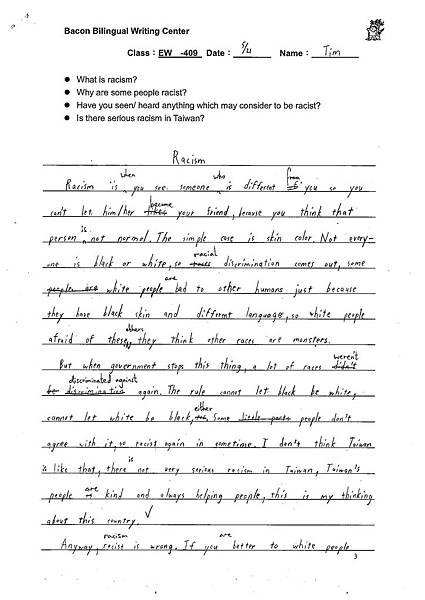 Bacon Bilingual Writing Center
Class : EW -409 Date : 5/4 Name : Tim
● What is racism?
● Why are some people racist?
● Have you seen/ heard anything which may consider to be racist?
● Is there serious racism in Taiwan?
Racism
when who from
Racism is, you see someone is different to you so you
become
can't let him/her your friend, because you think that
person is not normal. The simple case is skin color. Not every-
racial
one is black or white, so discrimination comes out, some
are
people are white people bad to other humans just because
they have black skin and different language, so white people
others
afraid of these, they think other races are monsters.
weren't
But when government stops this thing, a lot of races didn't
discriminated against
be discrimination again. The rule cannot let black be white,
either
cannot let white be black, Some people don't
agree with it, so racist again in sometime. I don't think Taiwan
is
is like that, there not very serious racism in Taiwan, Taiwan's
are
people kind and always helping people, this is my thinking
about this country.
racism are
Anyway, racist is wrong. If you better to white people
3